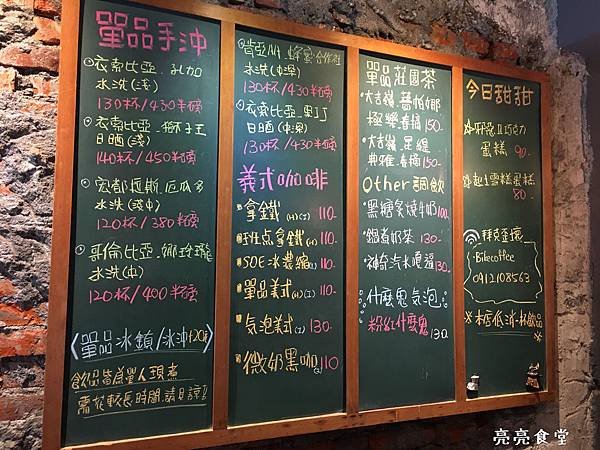 單品手沖
衣索比亞.孔加
水洗(淺)
130杯/430半磅
衣索比亞.獅子王
日晒(淺)
140杯/450半磅
宏都拉斯.厄瓜多
水洗(淺中)
120杯/380半磅
哥倫比亞.娜玲瓏
水洗(中)
120杯/400半磅
〈單品冰鎮/冰沖+20元〉
飲品皆為單人現煮
需花較長時間,請見諒!!
肯亞AA.蜂蜜合作社
水洗(中深)
130杯/430半磅
衣索比亞.果丁丁
日晒(中深)
130杯/430半磅
義式咖啡
拿鐵(H)(I) 110-
點拿鐵(H) 110-
SOE冰濃縮(I) 110-
單品美式(H)(I) 110-
氣泡美式(I) 130-
微奶黑咖(I) 110
單品莊園茶
大吉嶺.薔帕娜
極樂春摘 150-
大吉嶺.星緹
典雅.春摘 150-
Other調飲
黑糖炙燒牛奶 100
鍋煮奶茶 130-
神奇汽水 130-
什麼鬼氣泡
粉紅什麼鬼 130-
今日甜甜
邪惡ㄉ巧克力
蛋糕 90-
起士雪糕蛋糕
80-
拜克歪壞
Bikecoffee
0912108563
※本店低消一杯飲品※
亮亮食堂